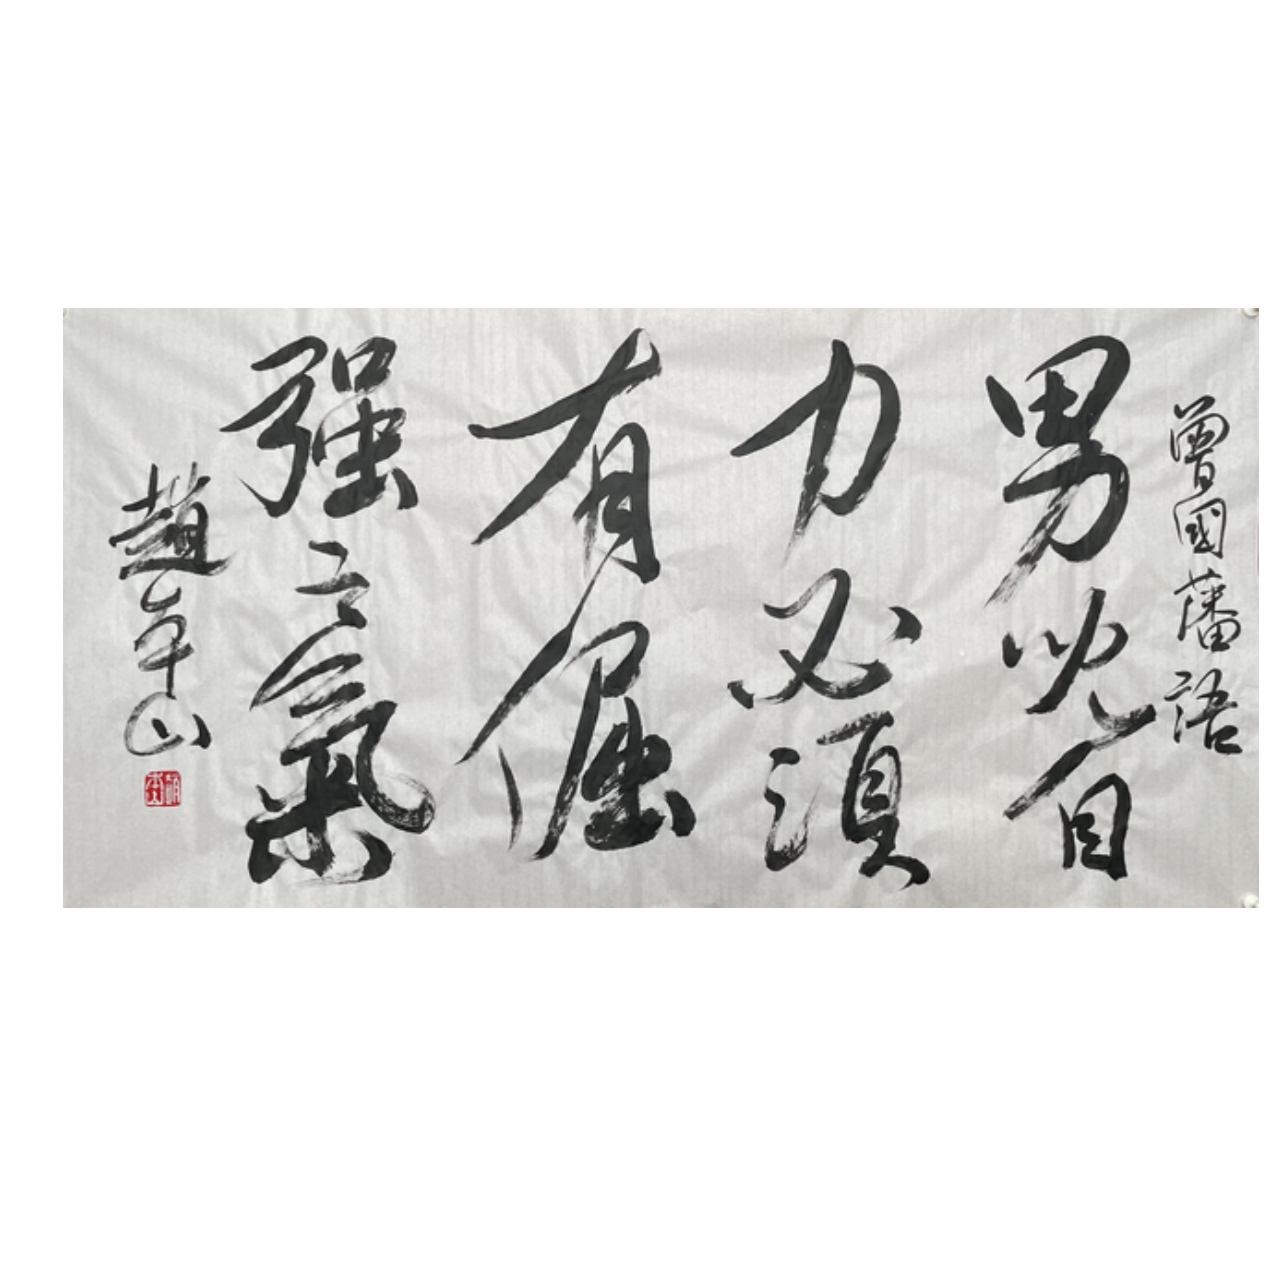 曾國藩語
男兒自
力必須
有倔
强之氣
趙平山